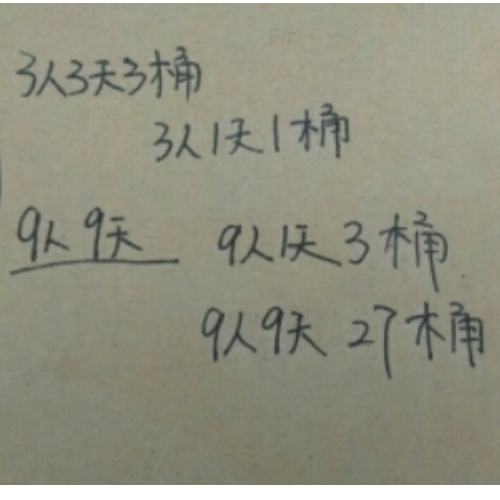 3人3天3桶
3人1天1桶
9人9天 9人1天3桶
9人9天 27桶